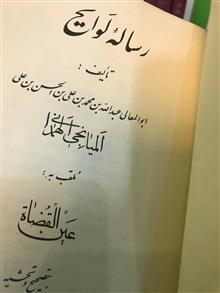 رسالهٔ لوایح
تألیف:
ابوالمعالی عبدالله بن محمد بن علی بن الحسن بن علی
المیانجی الهمدانی
ملقب به:
عین القضاة
بتصحیح و تحشیه